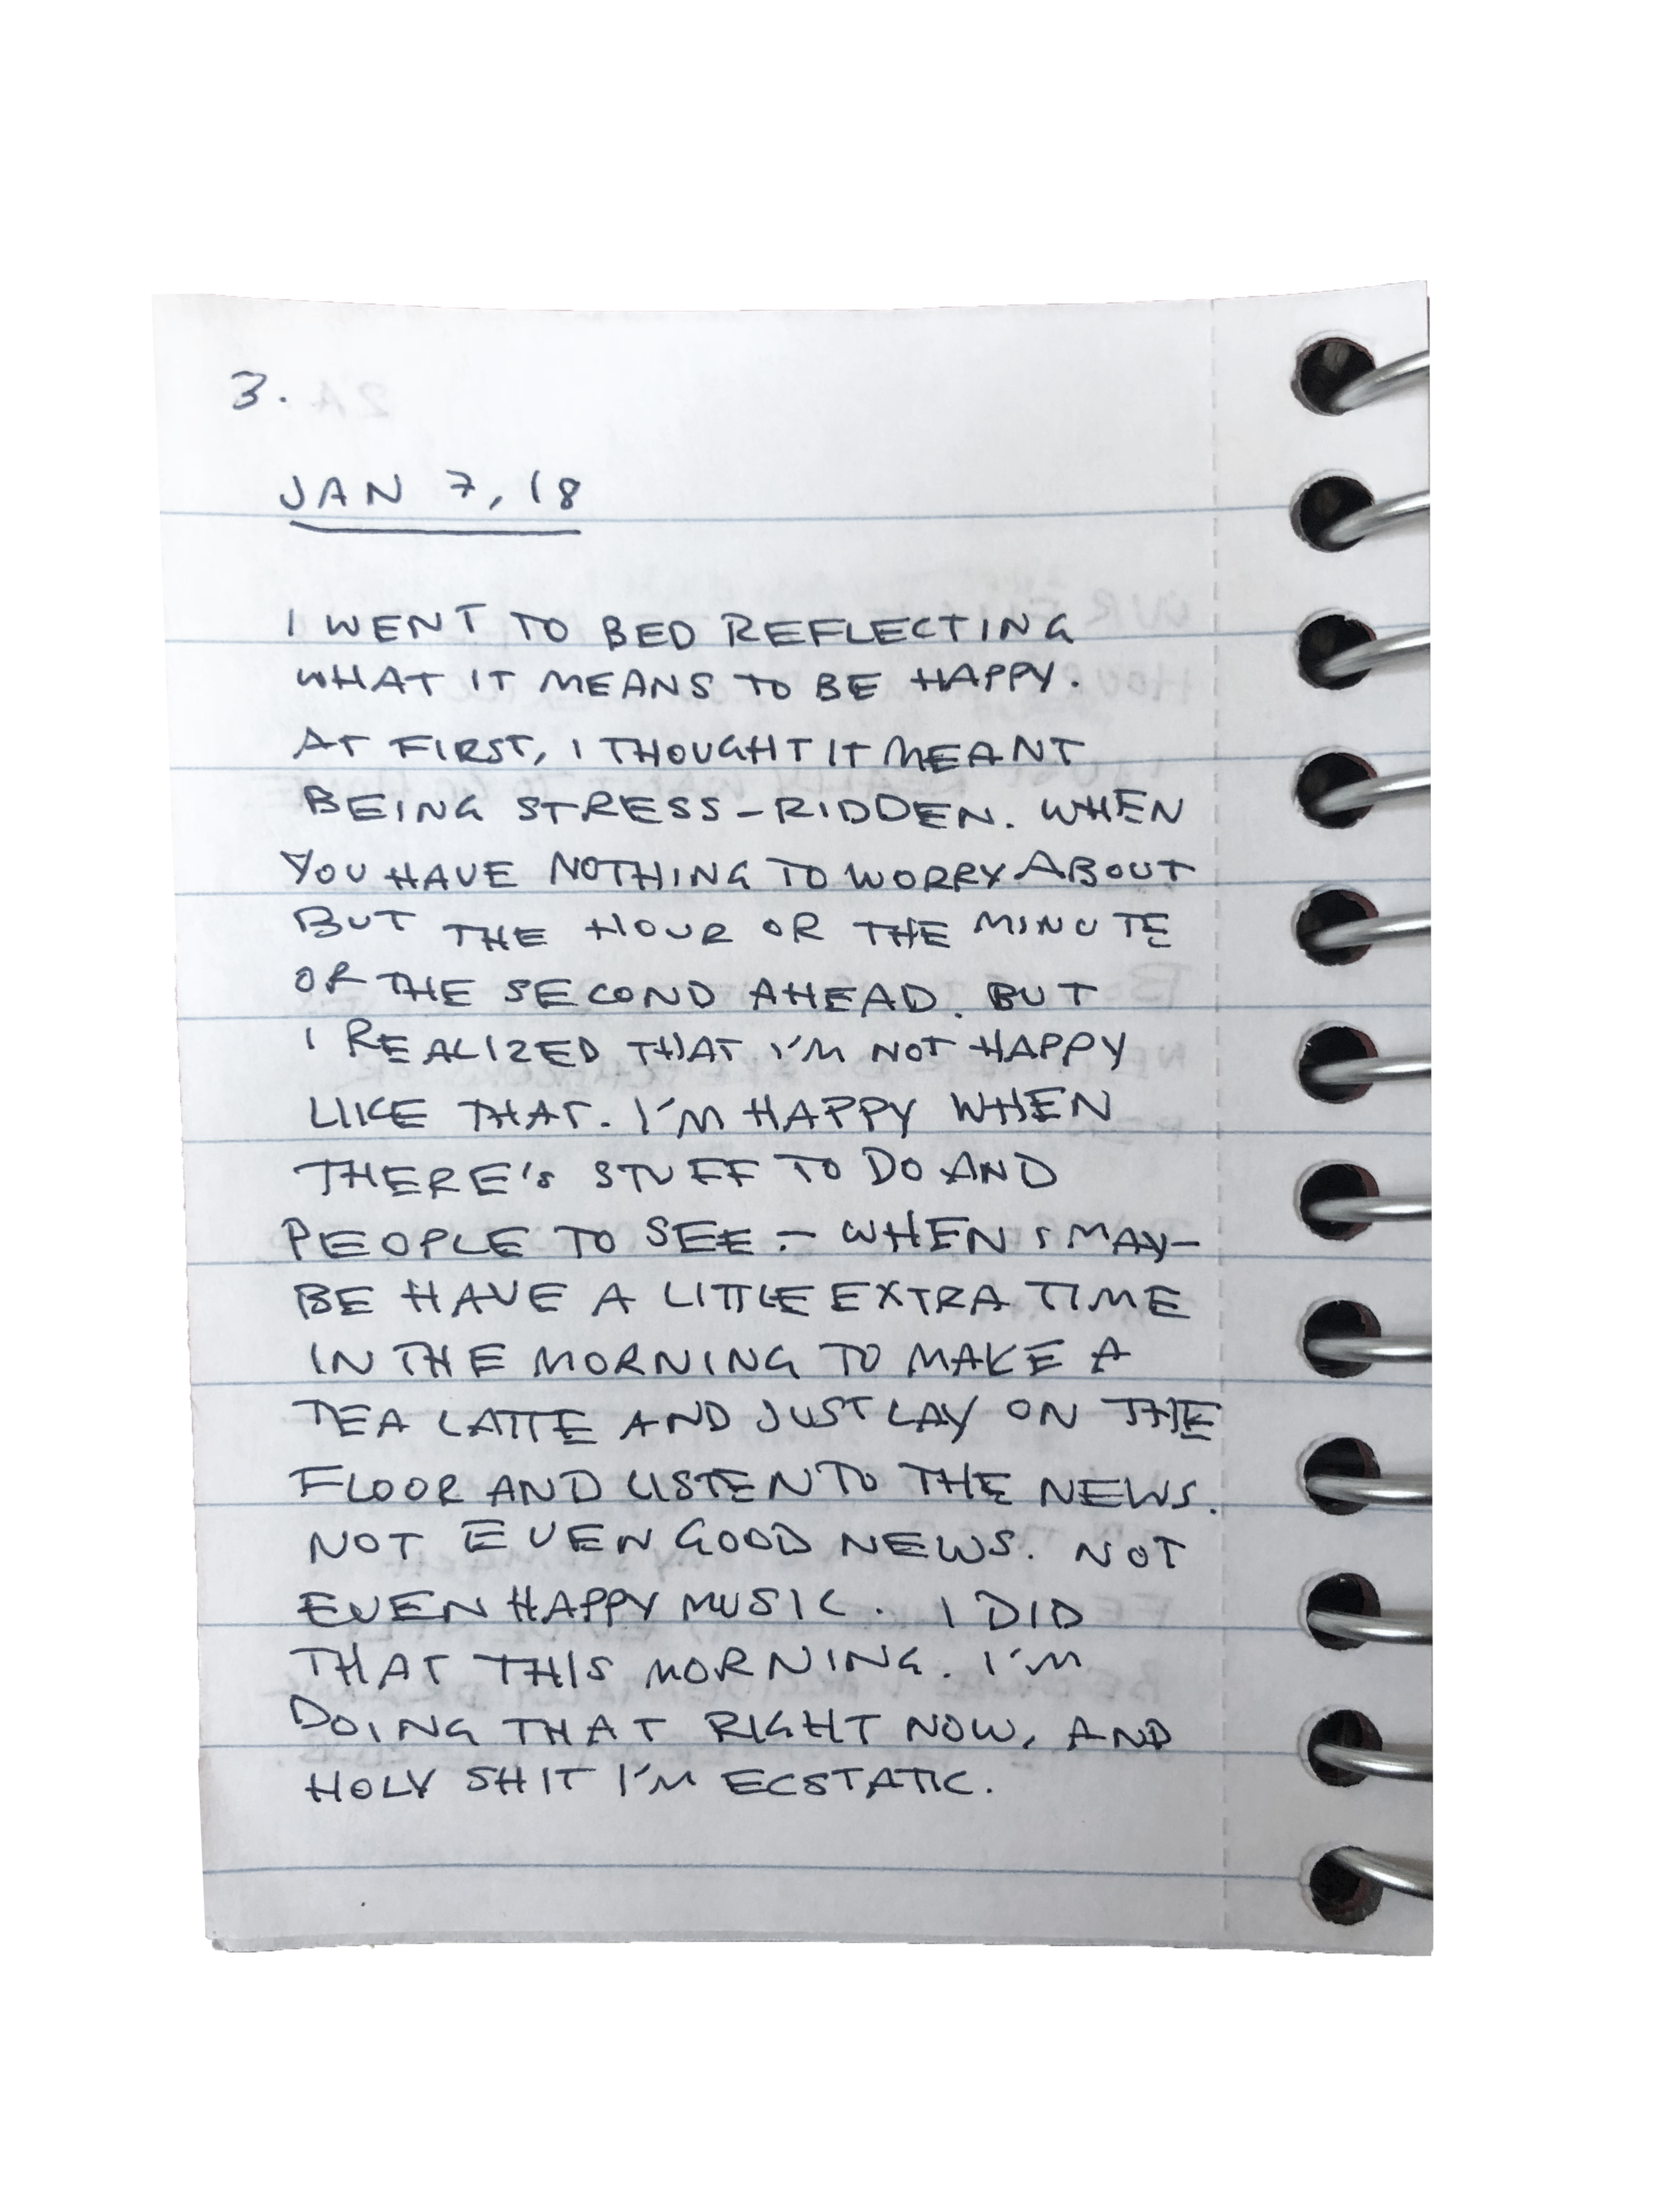 3.
JAN 7, 18
I WENT TO BED REFLECTING
WHAT IT MEANS TO BE HAPPY.
AT FIRST, I THOUGHT IT MEANT
BEING STRESS-RIDDEN. WHEN
YOU HAVE NOTHING TO WORRY ABOUT
BUT THE HOUR OR THE MINUTE
OR THE SECOND AHEAD. BUT
I REALIZED THAT I'M NOT HAPPY
LIKE THAT. I'M HAPPY WHEN
THERE'S STUFF TO DO AND
PEOPLE TO SEE - WHEN I MAY-
BE HAVE A LITTLE EXTRA TIME
IN THE MORNING TO MAKE A
TEA LATTE AND JUST LAY ON THE
FLOOR AND LISTEN TO THE NEWS.
NOT EVEN GOOD NEWS. NOT
EVEN HAPPY MUSIC. I DID
THAT THIS MORNING. I'M
DOING THAT RIGHT NOW, AND
HOLY SHIT I'M ECSTATIC.